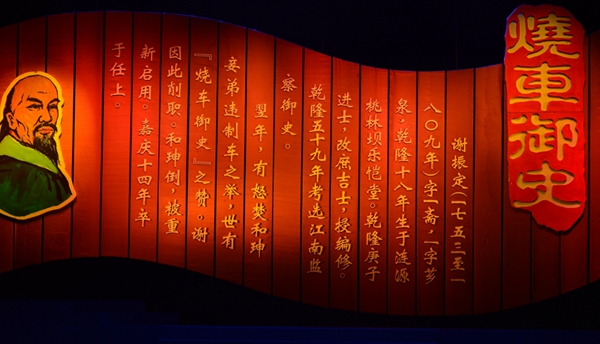 燒車御史
谢振定(一七五三至一
八〇九年)字一斋,一字芗
泉。乾隆十八年生于涟源
桃林坝乐恺堂。乾隆庚子
进士,改庶吉士,授编修。
乾隆五十九年考选江南监
察御史。
翌年,有怒焚和珅
妾弟违制车之举,世有
『烧车御史』之赞。谢
因此削职。和珅倒,被重
新启用。嘉庆十四年,卒
于任上。